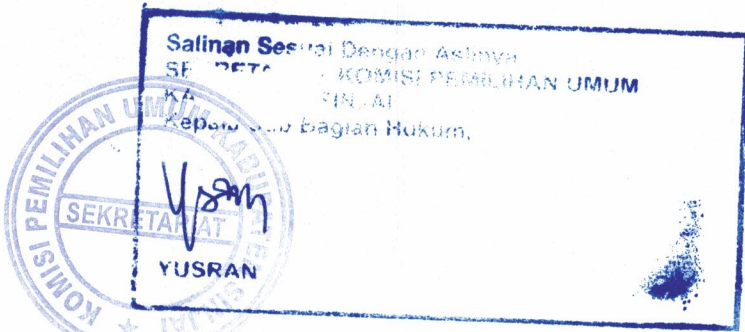 Salinan Sesuai Dengan Aslinya
KOMISI PEMILIHAN UMUM
Kepala Sub Bagian Hukum,
YUSRAN
KOMISI PEMILIHAN UMUM KABUPATEN SINJAI
SEKRETARIAT